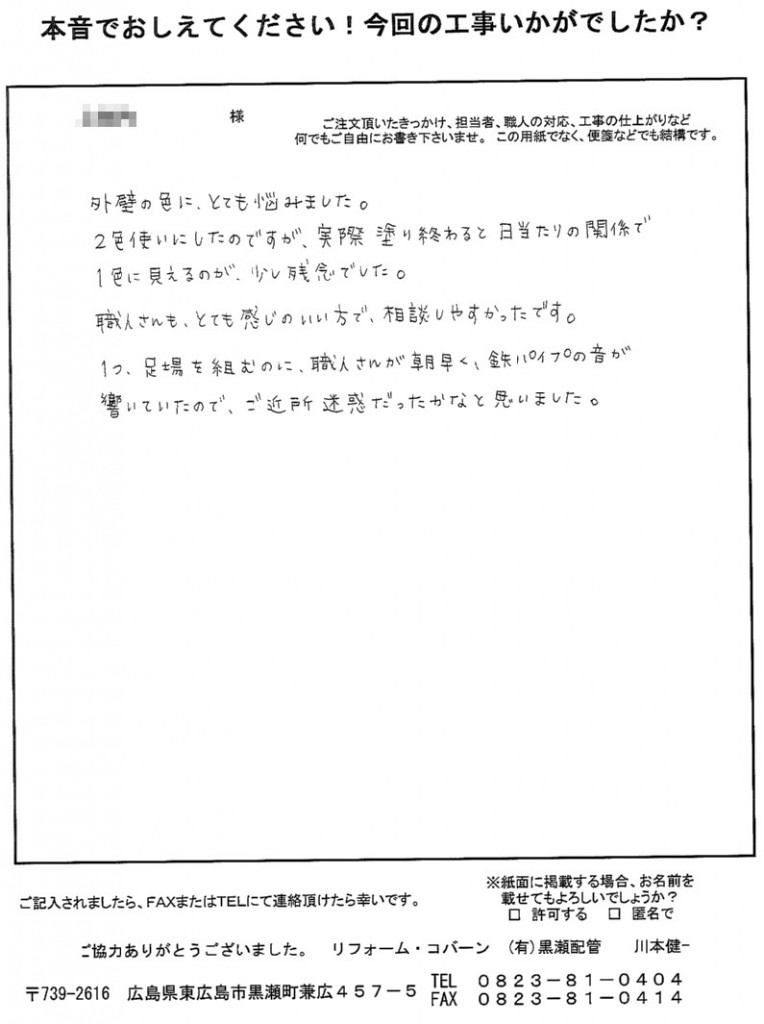 本音でおしえてください！今回の工事いかがでしたか？
様
ご注文頂いたきっかけ、担当者、職人の対応、工事の仕上がりなど
何でもご自由にお書き下さいませ。この用紙でなく、便箋などでも結構です。
外壁の色に、とても悩みました。
2色使いにしたのですが、実際塗り終わると日当たりの関係で
1色に見えるのが、少し残念でした。
職人さんも、とても感じのいい方で、相談しやすかったです。
1つ、足場を組むのに、職人さんが朝早く、鉄パイプの音が
響いていたので、ご近所迷惑だったかなと思いました。
※紙面に掲載する場合、お名前を
載せてもよろしいでしょうか？
□ 許可する □ 匿名で
ご記入されましたら、FAXまたはTELにて連絡頂けたら幸いです。
ご協力ありがとうございました。 リフォーム・コバーン （有）黒瀬配管 川本健一
〒739-2616 広島県東広島市黒瀬町兼広４５７－５
TEL ０８２３－８１－０４０４
FAX ０８２３－８１－０４１４